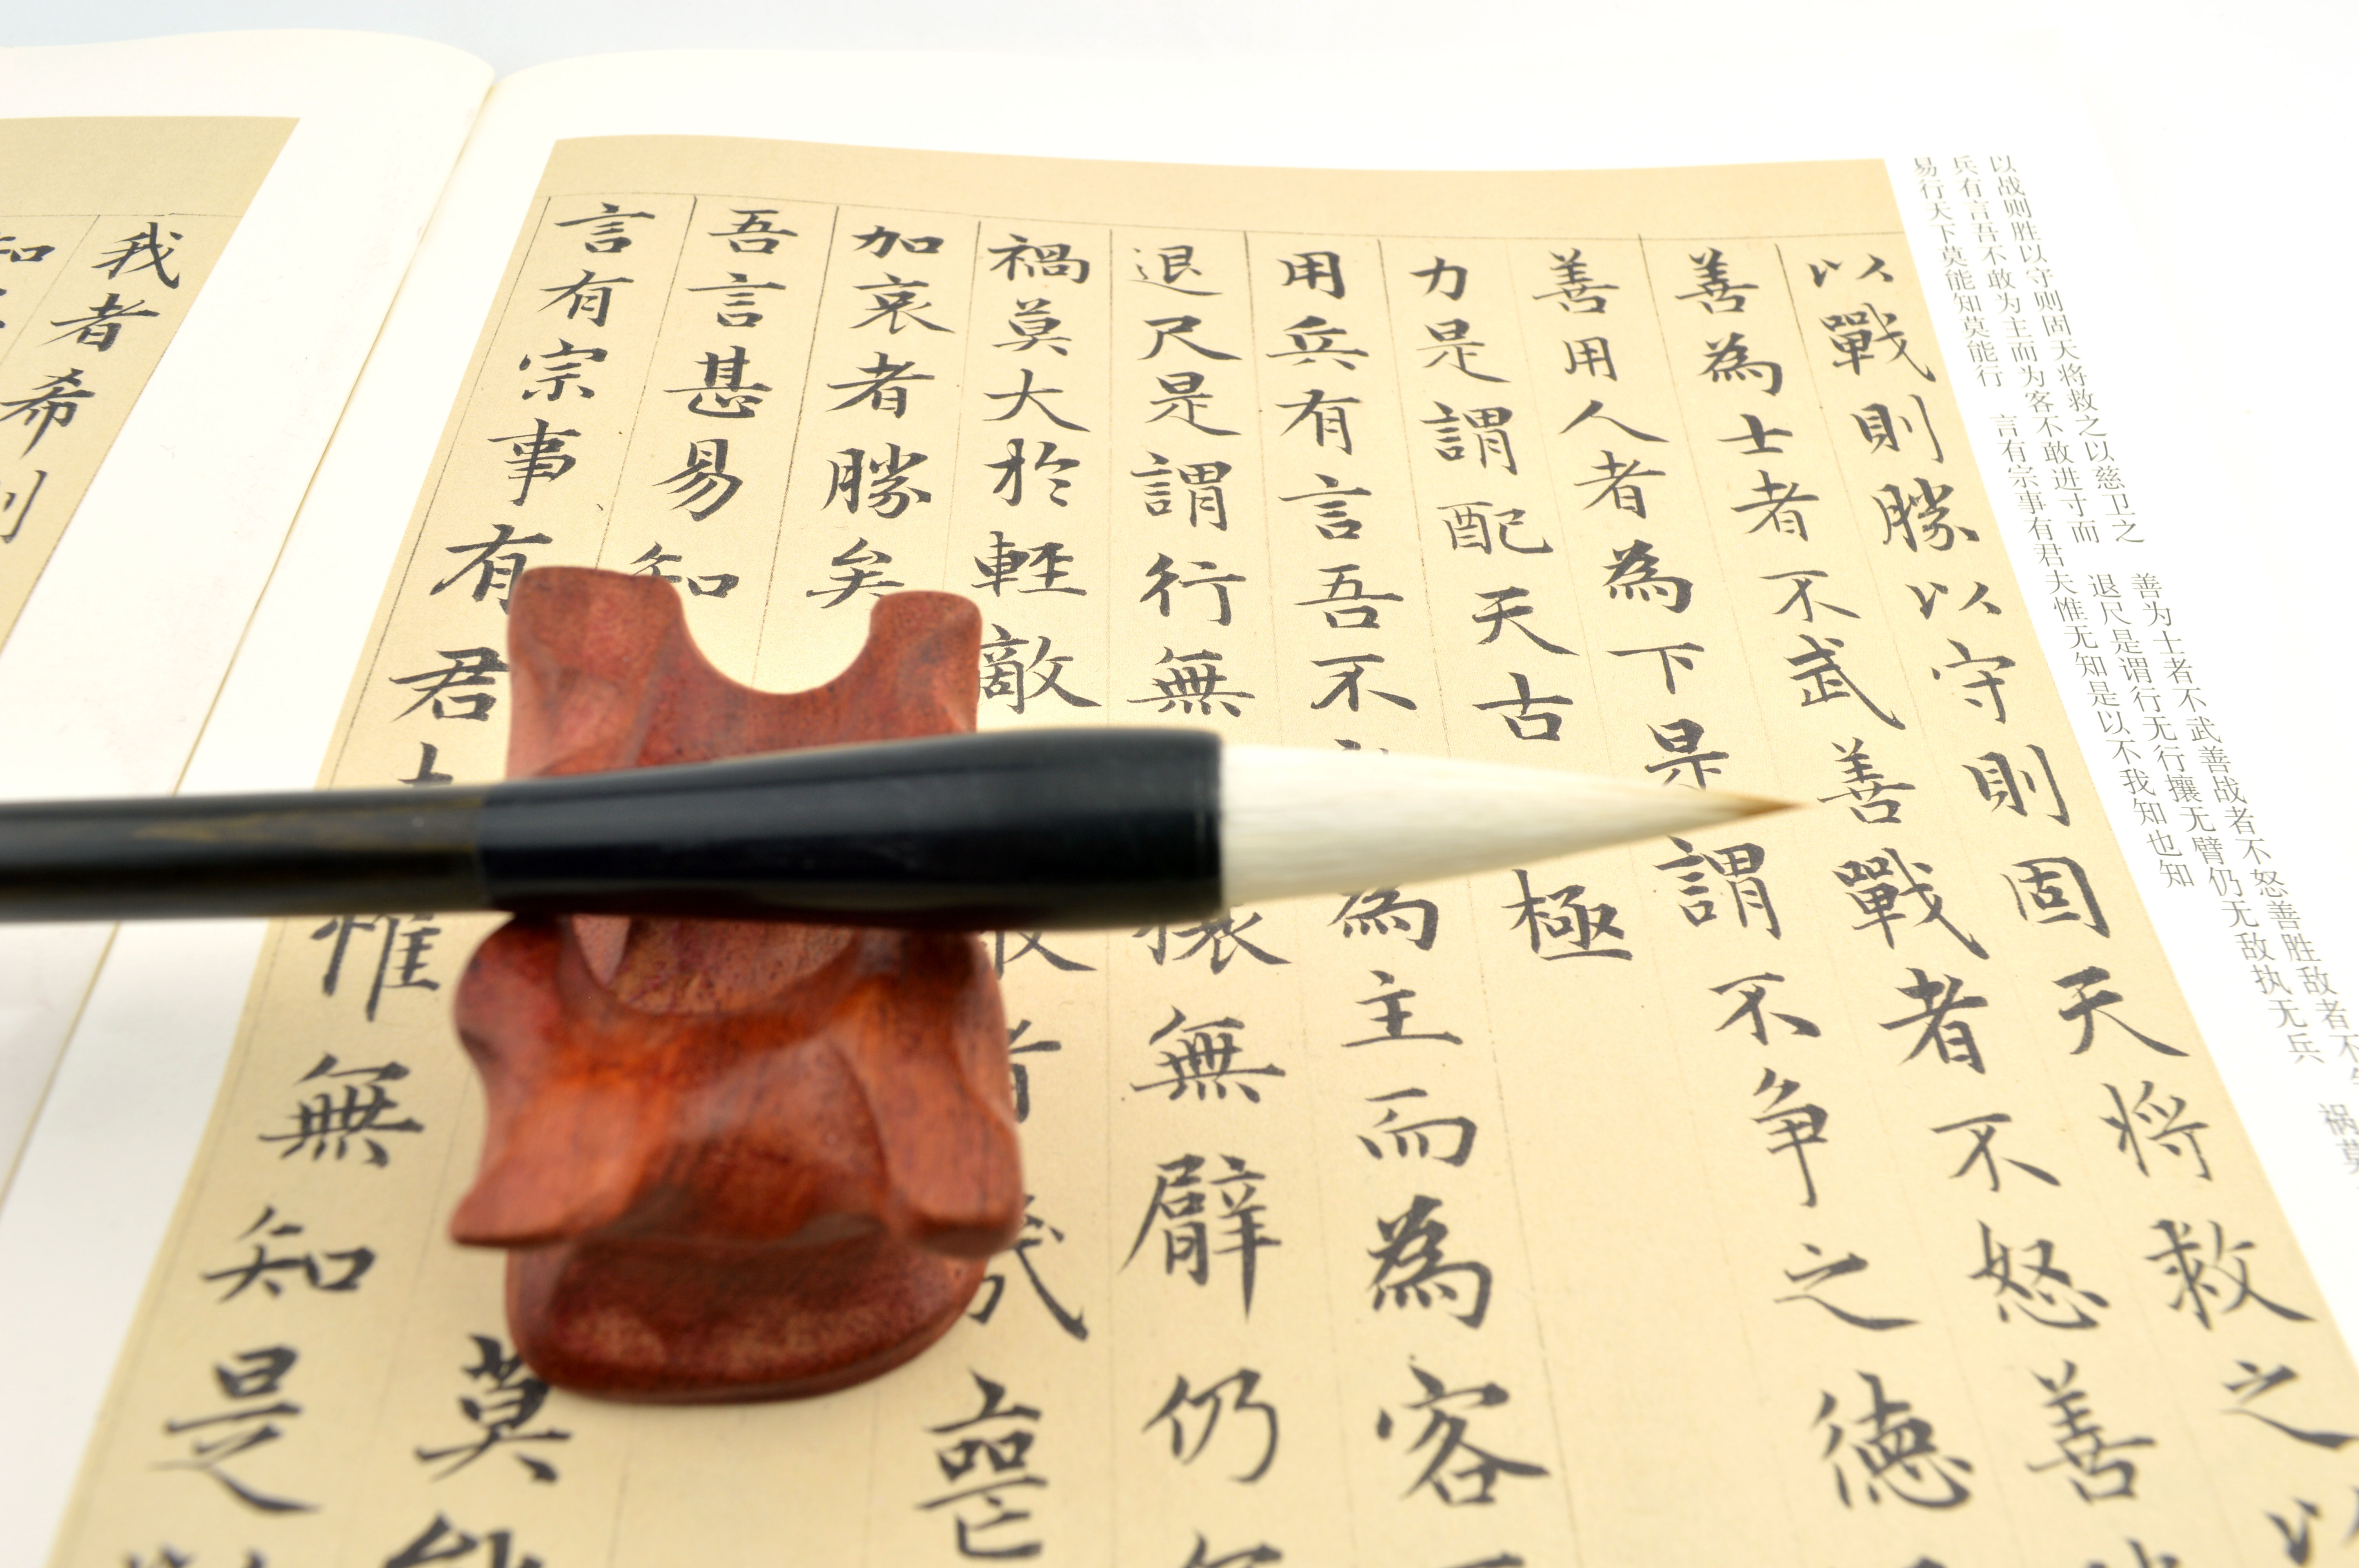 以战则胜以守则固天将救之以慈卫之　善为士者不武善战者不怒善胜敌者不
兵有言吾不敢为主而为客不敢进寸而　退尺是谓行无行攘无臂仍无敌执无兵　祸莫
易行天下莫能知莫能行　言有宗事有君夫惟无知是以不我知也知
以戰則勝以守則固天将救之以
善為士者不武善戰者不怒善
善用人者為下是謂不争之德
力是謂配天古極
用兵有言吾不為主而為客
退尺是謂行無攘無臂仍無
禍莫大於輕敵者幾喪
加哀者勝矣
吾言甚易知莫
言有宗事有君惟無知是
我者希則
知